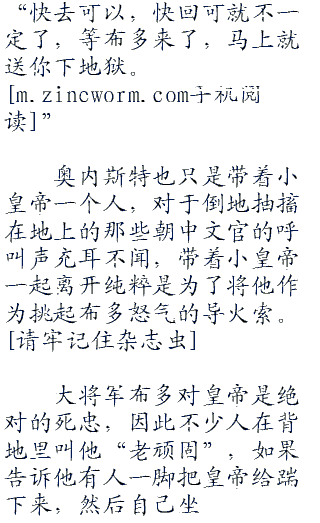 “快去可以，快回可就不一
定了，等布多来了，马上就
送你下地狱。
[m.zincworm.com手机阅
读]”
奥内斯特也只是带着小
皇帝一个人，对于倒地抽搐
在地上的那些朝中文官的呼
叫声充耳不闻，带着小皇帝
一起离开纯粹是为了将他作
为挑起布多怒气的导火索。
[请牢记住杂志虫]
大将军布多对皇帝是绝
对的死忠，因此不少人在背
地里叫他“老顽固”，如果
告诉他有人一脚把皇帝给踹
下来，然后自己坐